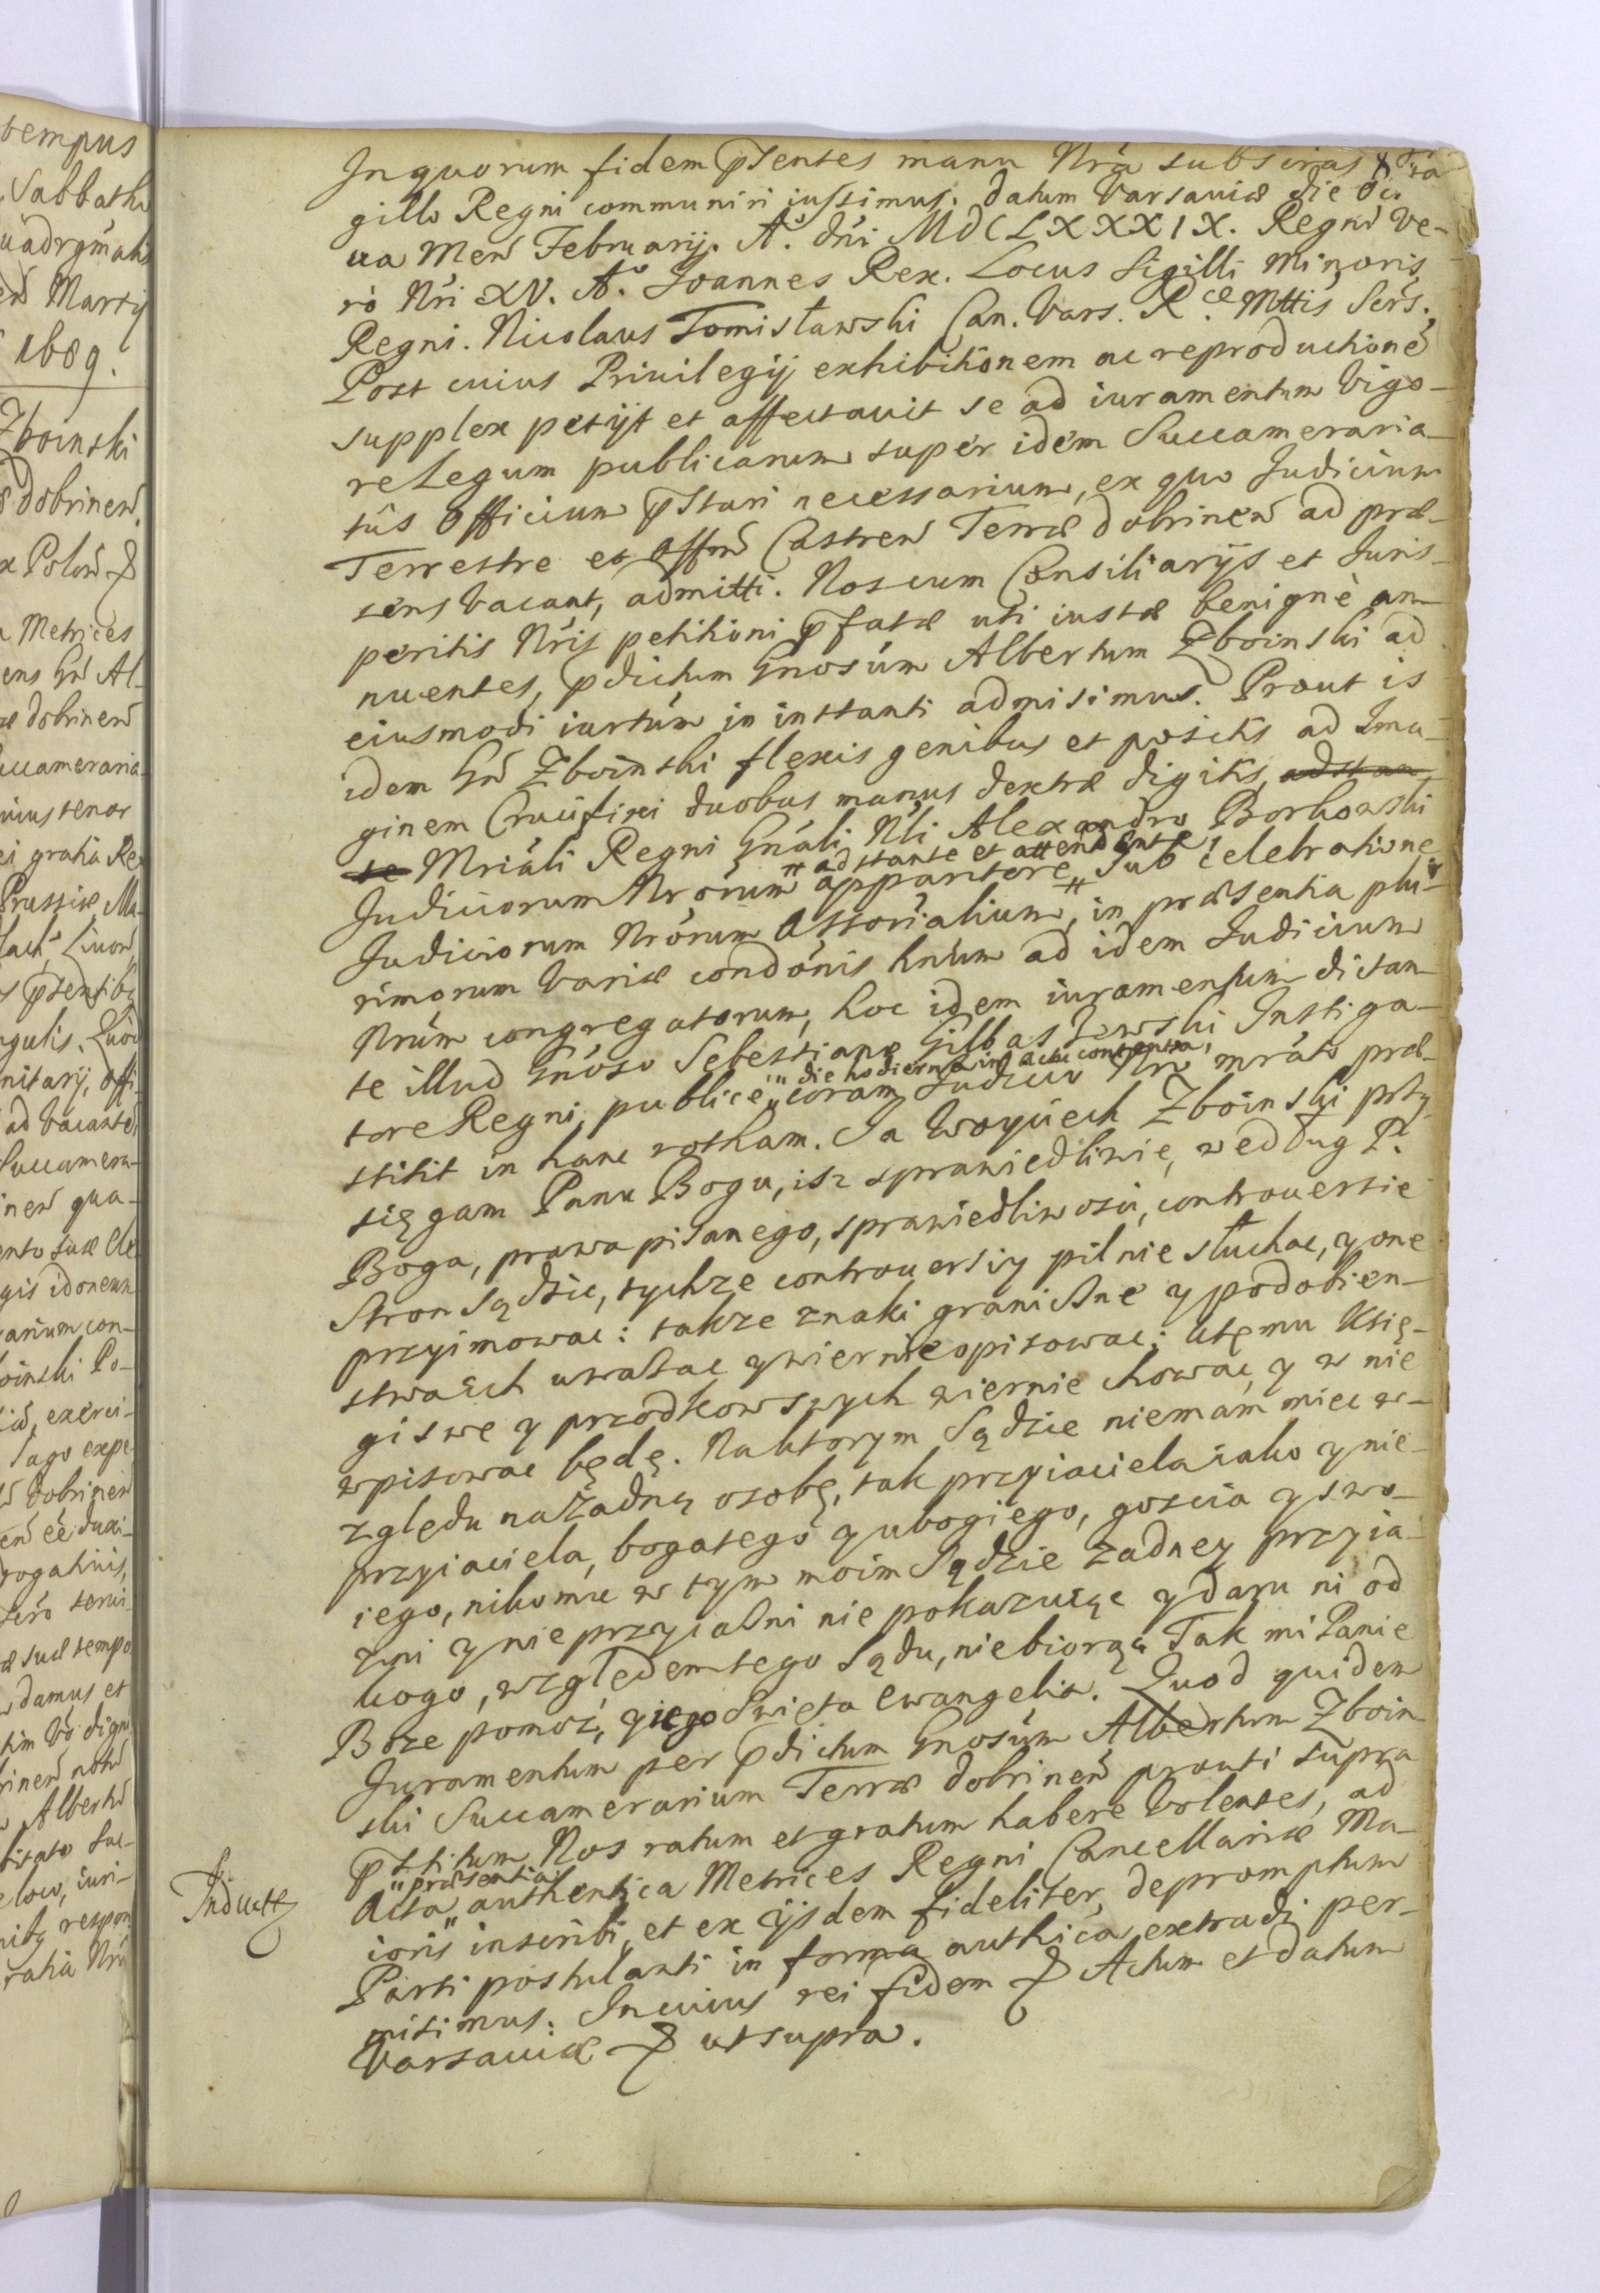 tempus
Sabbatho
Marty
1689.
Zboinski
dobrinen
Metrices
dobrinen
uccameraria
uius tenor
ei gratia Re
Prussiæ Ma-
gulis. Quod
ad vacante
Succamera-
inen qua-
gis idoneum
arium con-
oinski Po-
exerci-
dobrinen
rogativis,
damus et
Alberto
respon
ratia Nra
In quorum fidem pntes manu Nrā subscriptas
gillo Regni communiri iussimus. Datum Varsaviæ die Octa
ua Men Februarij. A. dni MDCLXXXIX. Regni Ve-
ro Nri XV. A. Joannes Rex. Locus Sigilli Minoris
Regni. Nicolaus Tomisławski Can. Vars. R. Mttis Secrs.
Post cuius Privilegij exhibitionem ac reproductionē
supplex petijt et affectavit se ad iuramentum Vigo-
re Legum publicarum super idem Succameraria-
tus Officium pstari necessarium, ex quo Judicium
Terrestre et Offm Castren Terræ dobrinen ad præ-
sens Vacant, admitti. Nos cum Consiliarijs et Juris-
peritis Nris petitioni pfatæ uti iustæ benignè an-
nuentes, pdictum Gnosum Albertum Zboinski ad
eiusmodi iurtum in instanti admisimus. Prout is
idem Gn Zboinski flexis genibus et positis ad Ima-
ginem Crucifixi duobus manus dextræ digitis, adstan-
te Mriali Regni Gnali Nli Alexandro Borkowski
" adstante et attendente
Judiciorum Nrorum apparitore " Sub celebratione
Judiciorum Nrorum Assorialium, in præsentia plu-
rimorum Variæ condonis hnum ad idem Judicium
Nrum congregatorum, hoc idem iuramentum dictan-
te illud Gnoso Sebestiano Gilbaszewski Instiga-
" die hodierna in actu contenta,
tore Regni, publice " coram Judicio Nro mrato præ-
stitit in hanc rotham. Ja Woyciech Zboinski przy-
sięgam Panu Bogu, isz sprawiedliwie, według P.
Boga, prawa pisanego, sprawiedliwosci, controuersie
Stron sądzic, tychze controuersiy pilnie słuchac, y one
przyimowac: takze znaki graniczne y podobien-
stwach uwazac y wiernie opisowac: ktemu Księ-
gi swe y przodkow swych wiernie chowac, y w nie
wpisowac będę. Naktorym Sądzie niemam miec w-
zględu nażadną osobę, tak przyiaciela iako y nie-
przyiaciela, bogatego y ubogiego, goscia y swo-
iego, nikomu w tym moim Sądzie zadney przyia-
zni y nieprzyiazni nie pokazuiąc y daru ni od
kogo, względem tego Sądu, niebiorąc. Tak mi Panie
Boze pomoż, y iego Swięta Ewangelia. Quod quidem
Juramentum per pdictum Gnosum Albertum Zboin-
ski Succamerarium Terræ dobrinen prouti supra
pstitum Nos ratum et gratum habere Volentes, ad
" præsentia
Acta " authentica Metrices Regni Cancellariæ Ma-
ioris inscribi, et ex ijsdem fideliter, depromptum
Parti postulanti in forma authica extradi per-
misimus. In cuius rei fidem & Actum et datum
Varsaviæ & ut supra.
Inductt